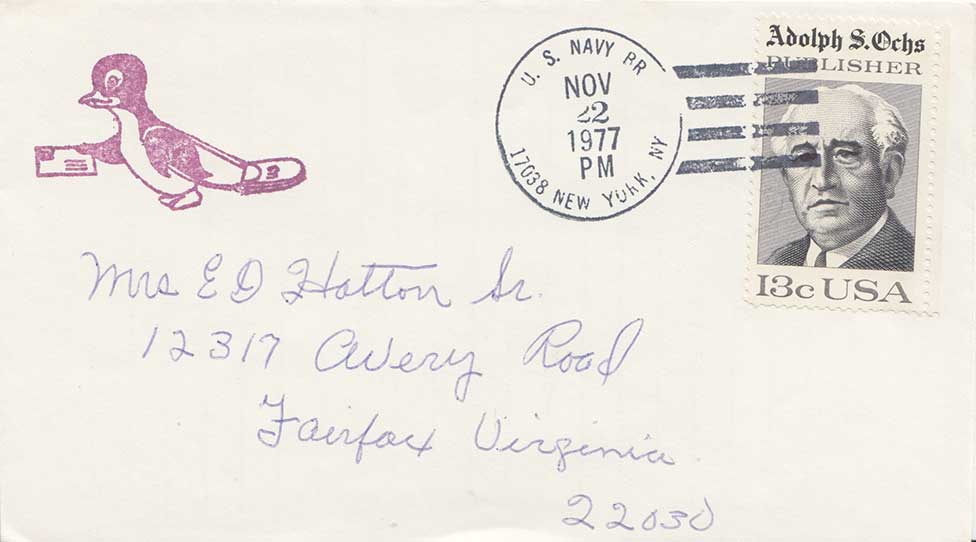 U. S. NAVY BR
NOV
22
1977
PM
17038 NEW YORK, NY
Adolph S. Ochs
PUBLISHER
13c USA
Mrs E D Hatton Sr.
12317 Avery Road
Fairfax Virginia
22030